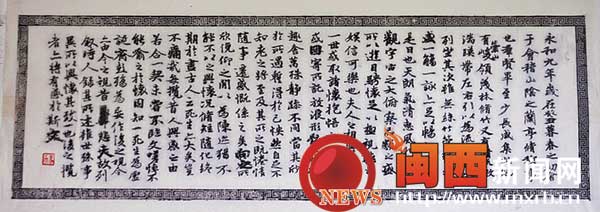 永和九年歲在癸丑暮春之初
于會稽山陰之蘭亭修禊
也羣賢畢至少長咸集
崇山
有峻領茂林修竹又有
湍暎帶左右引以為流
列坐其次雖無絲竹
盛一觴一詠亦足以暢
是日也天朗氣清惠
觀宇宙之大俯察品類之盛
所以遊目騁懷足以極視
娛信可樂也夫人之相
一世或取諸懷抱悟
或因寄所託放浪形
趣舍萬殊靜躁不同當其欣
於所遇蹔得於己快然自足不
知老之將至及其所之既惓情
隨事遷感慨係之矣向之所
欣俛仰之閒以為陳迹猶不
能不以之興懷況脩短隨化終
期於盡古人云死生亦大矣豈
不痛哉每攬昔人興感之由
若合一契未嘗不臨文嗟悼不
能喻之於懷固知一死生為虛
誕齊彭殤為妄作後之視今
亦由今之視昔悲夫故列
敘時人錄其所述雖世殊事
異所以興懷其致一也後之攬
者亦將有感於斯文
NEWS
闽西新闻网
www.mxrb.cn